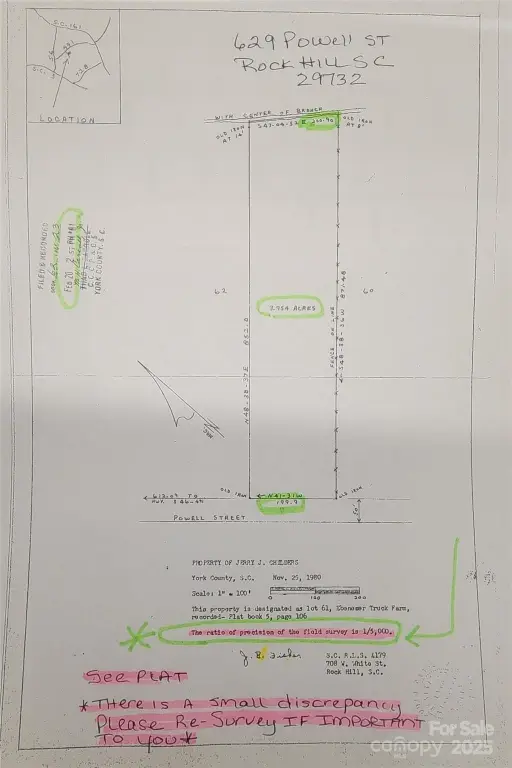 629 Powell ST
Rock Hill SC
29732
LOCATION
WITH CENTER OF BRANCH
OLD IRON
AT 14'
OLD IRON
AT 8'
FILED & RECORDED
FEB 20
YORK COUNTY, S.C.
62
60
2.734 ACRES
FENCE ON LINE
OLD IRON
OLD IRON
N41-31W
199.9
50'
POWELL STREET
PROPERTY OF JERRY J. CHILDERS
York County, S.C. Nov. 25, 1980
Scale: 1" = 100'
0 100 200
This property is designated as lot 61, Ebenezer Truck Farm,
recorded- Plat book 5, page 106
The ratio of precision of the field survey is 1/5,000.
S.C. R.L.S. 4179
708 W. White St.
Rock Hill, S.C.
See PLAT
*There is A small discrepancy
Please Re-Survey IF IMPORTANT
TO YOU*
For Sale
canopy 2025
MLS